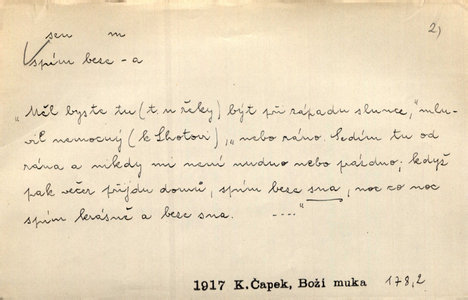 sen m 2)
spím beze -a
„Měl byste tu (t. u řeky) být při západu slunce," mlu-
vil nemocný (k Lhotovi), „nebo ráno. Sedím tu od
rána a nikdy mi není nudno nebo prázdno; když
pak večer přijdu domů, spím beze sna, noc co noc
spím krásně a beze sna. ...."
1917 K.Čapek, Boží muka 178,2